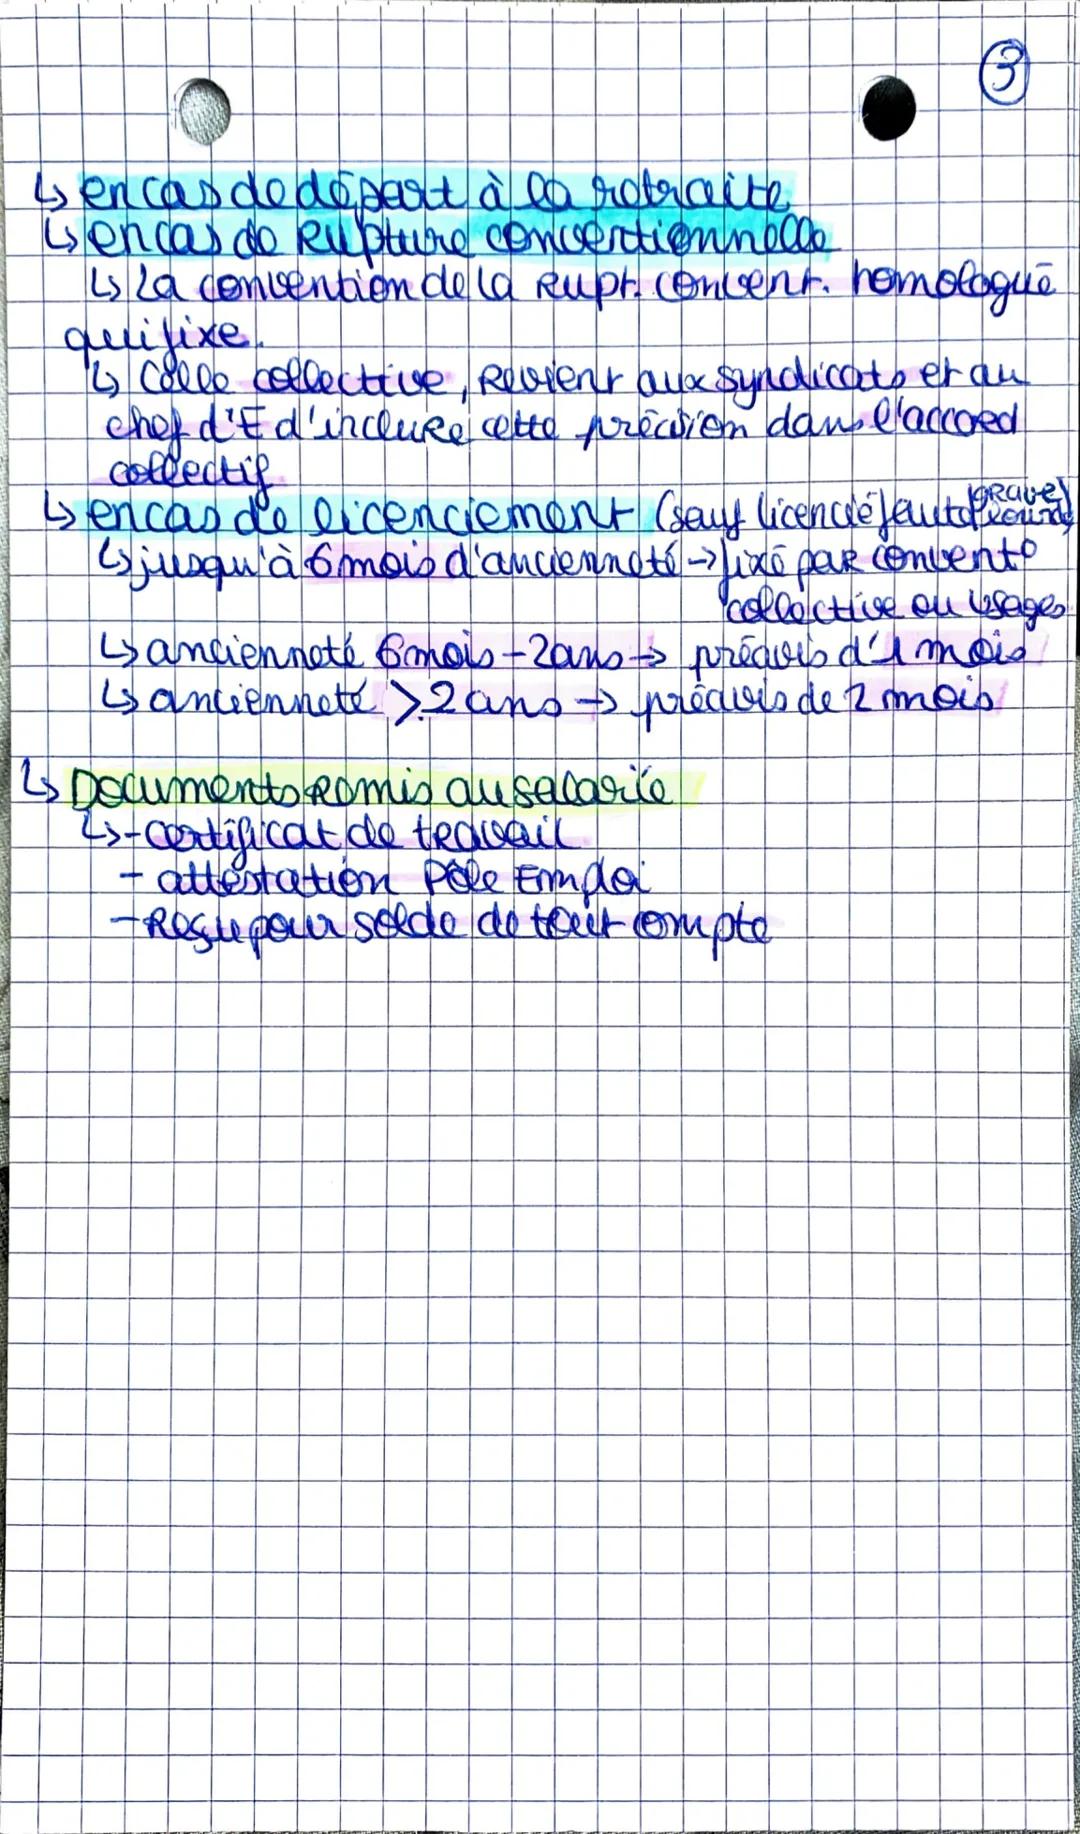 3
↳ en cas de départ à la retraite
↳ en cas de Rupture conventionnelle
↳ La convention de la Rupt. convent. homologué
qui fixe.
↳ Celle collective, Revient aux syndicats et au
chef d'E d'inclure cette précision dans l'accord
collectif
↳ en cas de licenciement (sauf licencié faute grave/
lourde)
↳ jusqu'à 6 mois d'ancienneté → fixé par convent°
collective ou usages
↳ ancienneté 6 mois - 2 ans → préavis d'1 mois
↳ ancienneté ⩾ 2 ans → préavis de 2 mois
↳ Documents Remis au salarié
↳ - certificat de travail
- attestation Pôle Emploi
- Reçu pour solde de tout compte